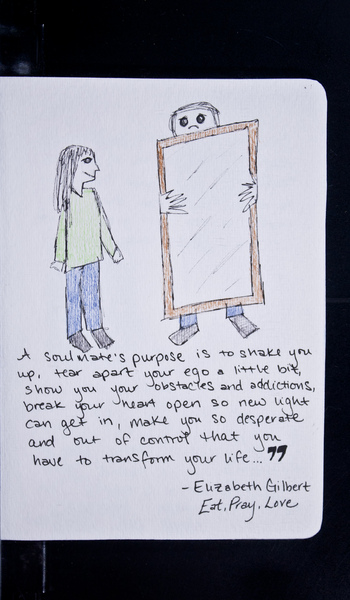 A soulmate's purpose is to shake you
up, tear apart your ego a little bit,
show you your obstacles and addictions,
break your heart open so new light
can get in, make you so desperate
and out of control that you
have to transform your life..."
- Elizabeth Gilbert
Eat, Pray, Love